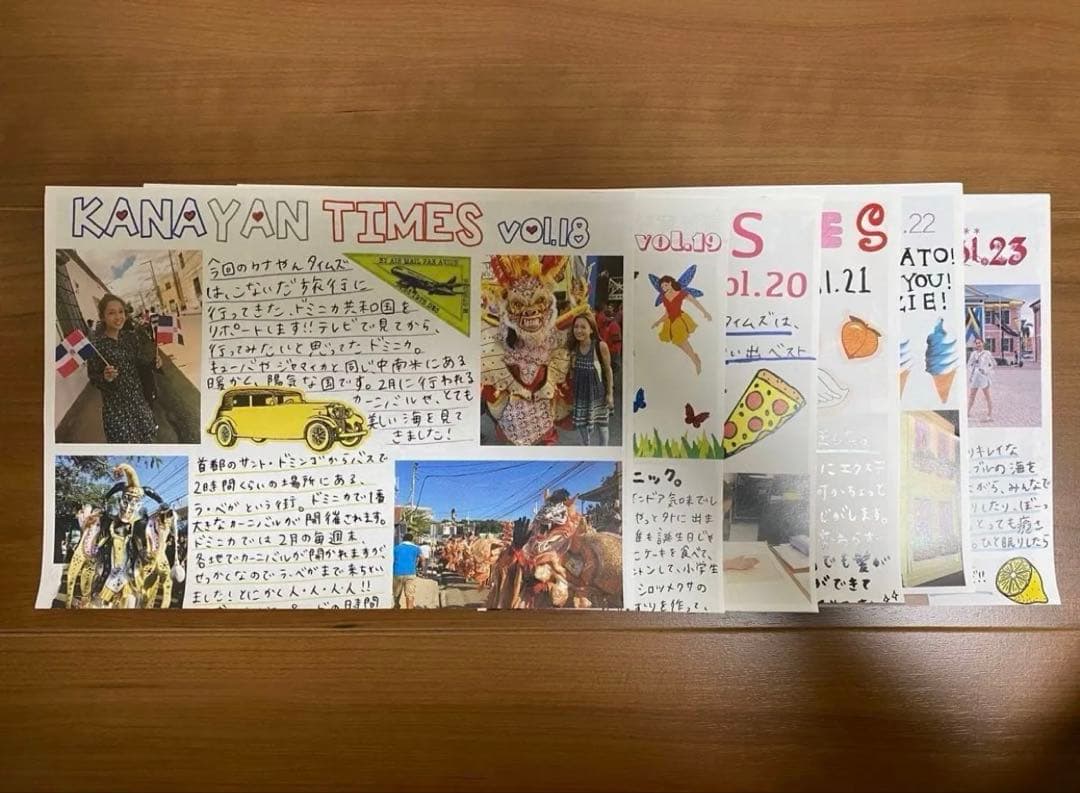 KANAYAN TIMES vol.18
今回のカナやんタイムズ
は、こないだ旅行に
行ってきた、ドミニカ共和国を
リポートします!!テレビで見てから、
行ってみたいと思ってたドミニカ。
キューバやジャマイカと同じ中南米にある
暖かく、陽気な国です。2月に行われる
カーニバルや、とても
美しい海を見て
きました!
BY AIR MAIL PAR AVION
首都のサント・ドミンゴからバスで
2時間くらいの場所にある、
ラ・ベガという街。ドミニカで1番
大きなカーニバルが開催されます。
ドミニカでは2月の毎週末、
各地でカーニバルが開かれますが
せっかくなのでラ・ベガまで来ちゃい
ました!とにかく人・人・人!!
の時間
vol.19
ニック。
インドア気味でし
やっと外に出ま
も誕生日じゃ
ケーキを食べて、
トンして、小学生
シロツメクサの
りを作って、
S
ol.20
タイムズは、
い出ベスト
ES
l.21
にエクステ
がします。
でも髪が
ができて
.22
ATO!
YOU!
ZIE!
ol.23
リキレイな
ブルの海を
がら、みんなで
したり、ぼーっ
とっても癒さ
。ひと眠りしたら
!!